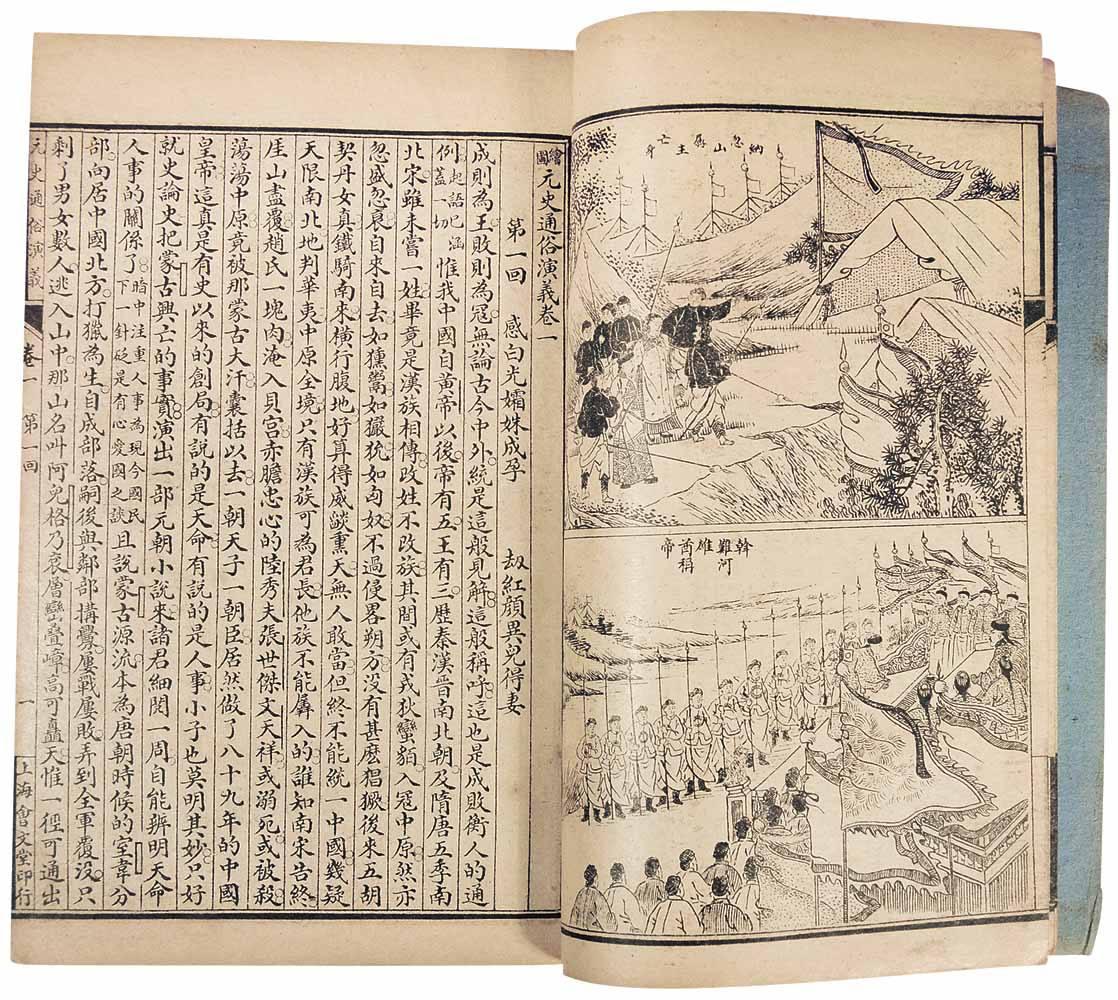 納忽山孱主亡身
斡難河雄酋稱帝
繪圖元史通俗演義卷一
第一回 感白光孀姝成孕 劫紅顏異兒得妻
成則為王敗則為寇無論古今中外統是這般見解這般稱呼這也是成敗衡人的通
例起語已涵蓋一切惟我中國自黃帝以後帝有五王有三歷秦漢晉南北朝及隋唐五季南
北宋雖未嘗一姓畢竟是漢族相傳改姓不改族其間或有戎狄蠻貊入寇中原然亦
忽盛忽衰自來自去如獯鬻如玁狁如匈奴不過侵畧朔方沒有甚麼猖獗後來五胡
契丹女真鐵騎南來橫行腹地好算得威燄熏天無人敢當但終不能統一中國幾疑
天限南北地判華夷中原全境只有漢族可為君長他族不能羼入的誰知南宋告終
厓山盡覆趙氏一塊肉淹入貝宮赤膽忠心的陸秀夫張世傑文天祥或溺死或被殺
蕩蕩中原竟被那蒙古大汗囊括以去一朝天子一朝臣居然做了八十九年的中國
皇帝這真是有史以來的創局有說的是天命有說的是人事小子也莫明其妙只好
就史論史把蒙古興亡的事實演出一部元朝小說來諸君細閱一周自能辨明天命
人事的關係了暗中注重人事為現今國民下一針砭是有心愛國之談且說蒙古源流本為唐朝時候的室韋分
部向居中國北方打獵為生自成部落嗣後與鄰部搆釁屢戰屢敗弄到全軍覆沒只
剩了男女數人逃入山中那山名叫阿兒格乃袞層巒疊嶂高可矗天惟一徑可通出
元史通俗演義 卷一 第一回 一 上海會文堂印行